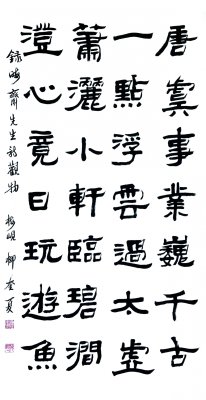 唐虞事業巍千古
一點浮雲過太虛
蕭灑小軒臨碧澗
澄心竟日玩遊魚
錄晦齋先生詩觀物 梅峴 柳奎夏